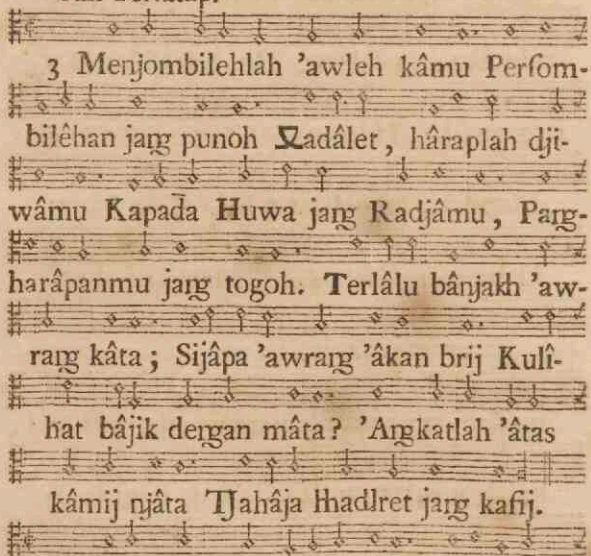 3 Menjombilehlah 'awleh kâmu Perſom-
bilêhan jaŋg punoh Ꜿadâlet, hâraplah dji-
wâmu Kapada Huwa jaŋg Radjâmu, Paŋg-
harâpanmu jaŋg togoh. Terlâlu bânjakh 'aw-
raŋg kâta; Sijâpa 'awraŋg 'âkan brij Kulî-
hat bâjik deŋgan mâta? 'Aŋgkatlah 'âtas
kâmij njâta TJahâja Hhadlret jaŋg kaſij.